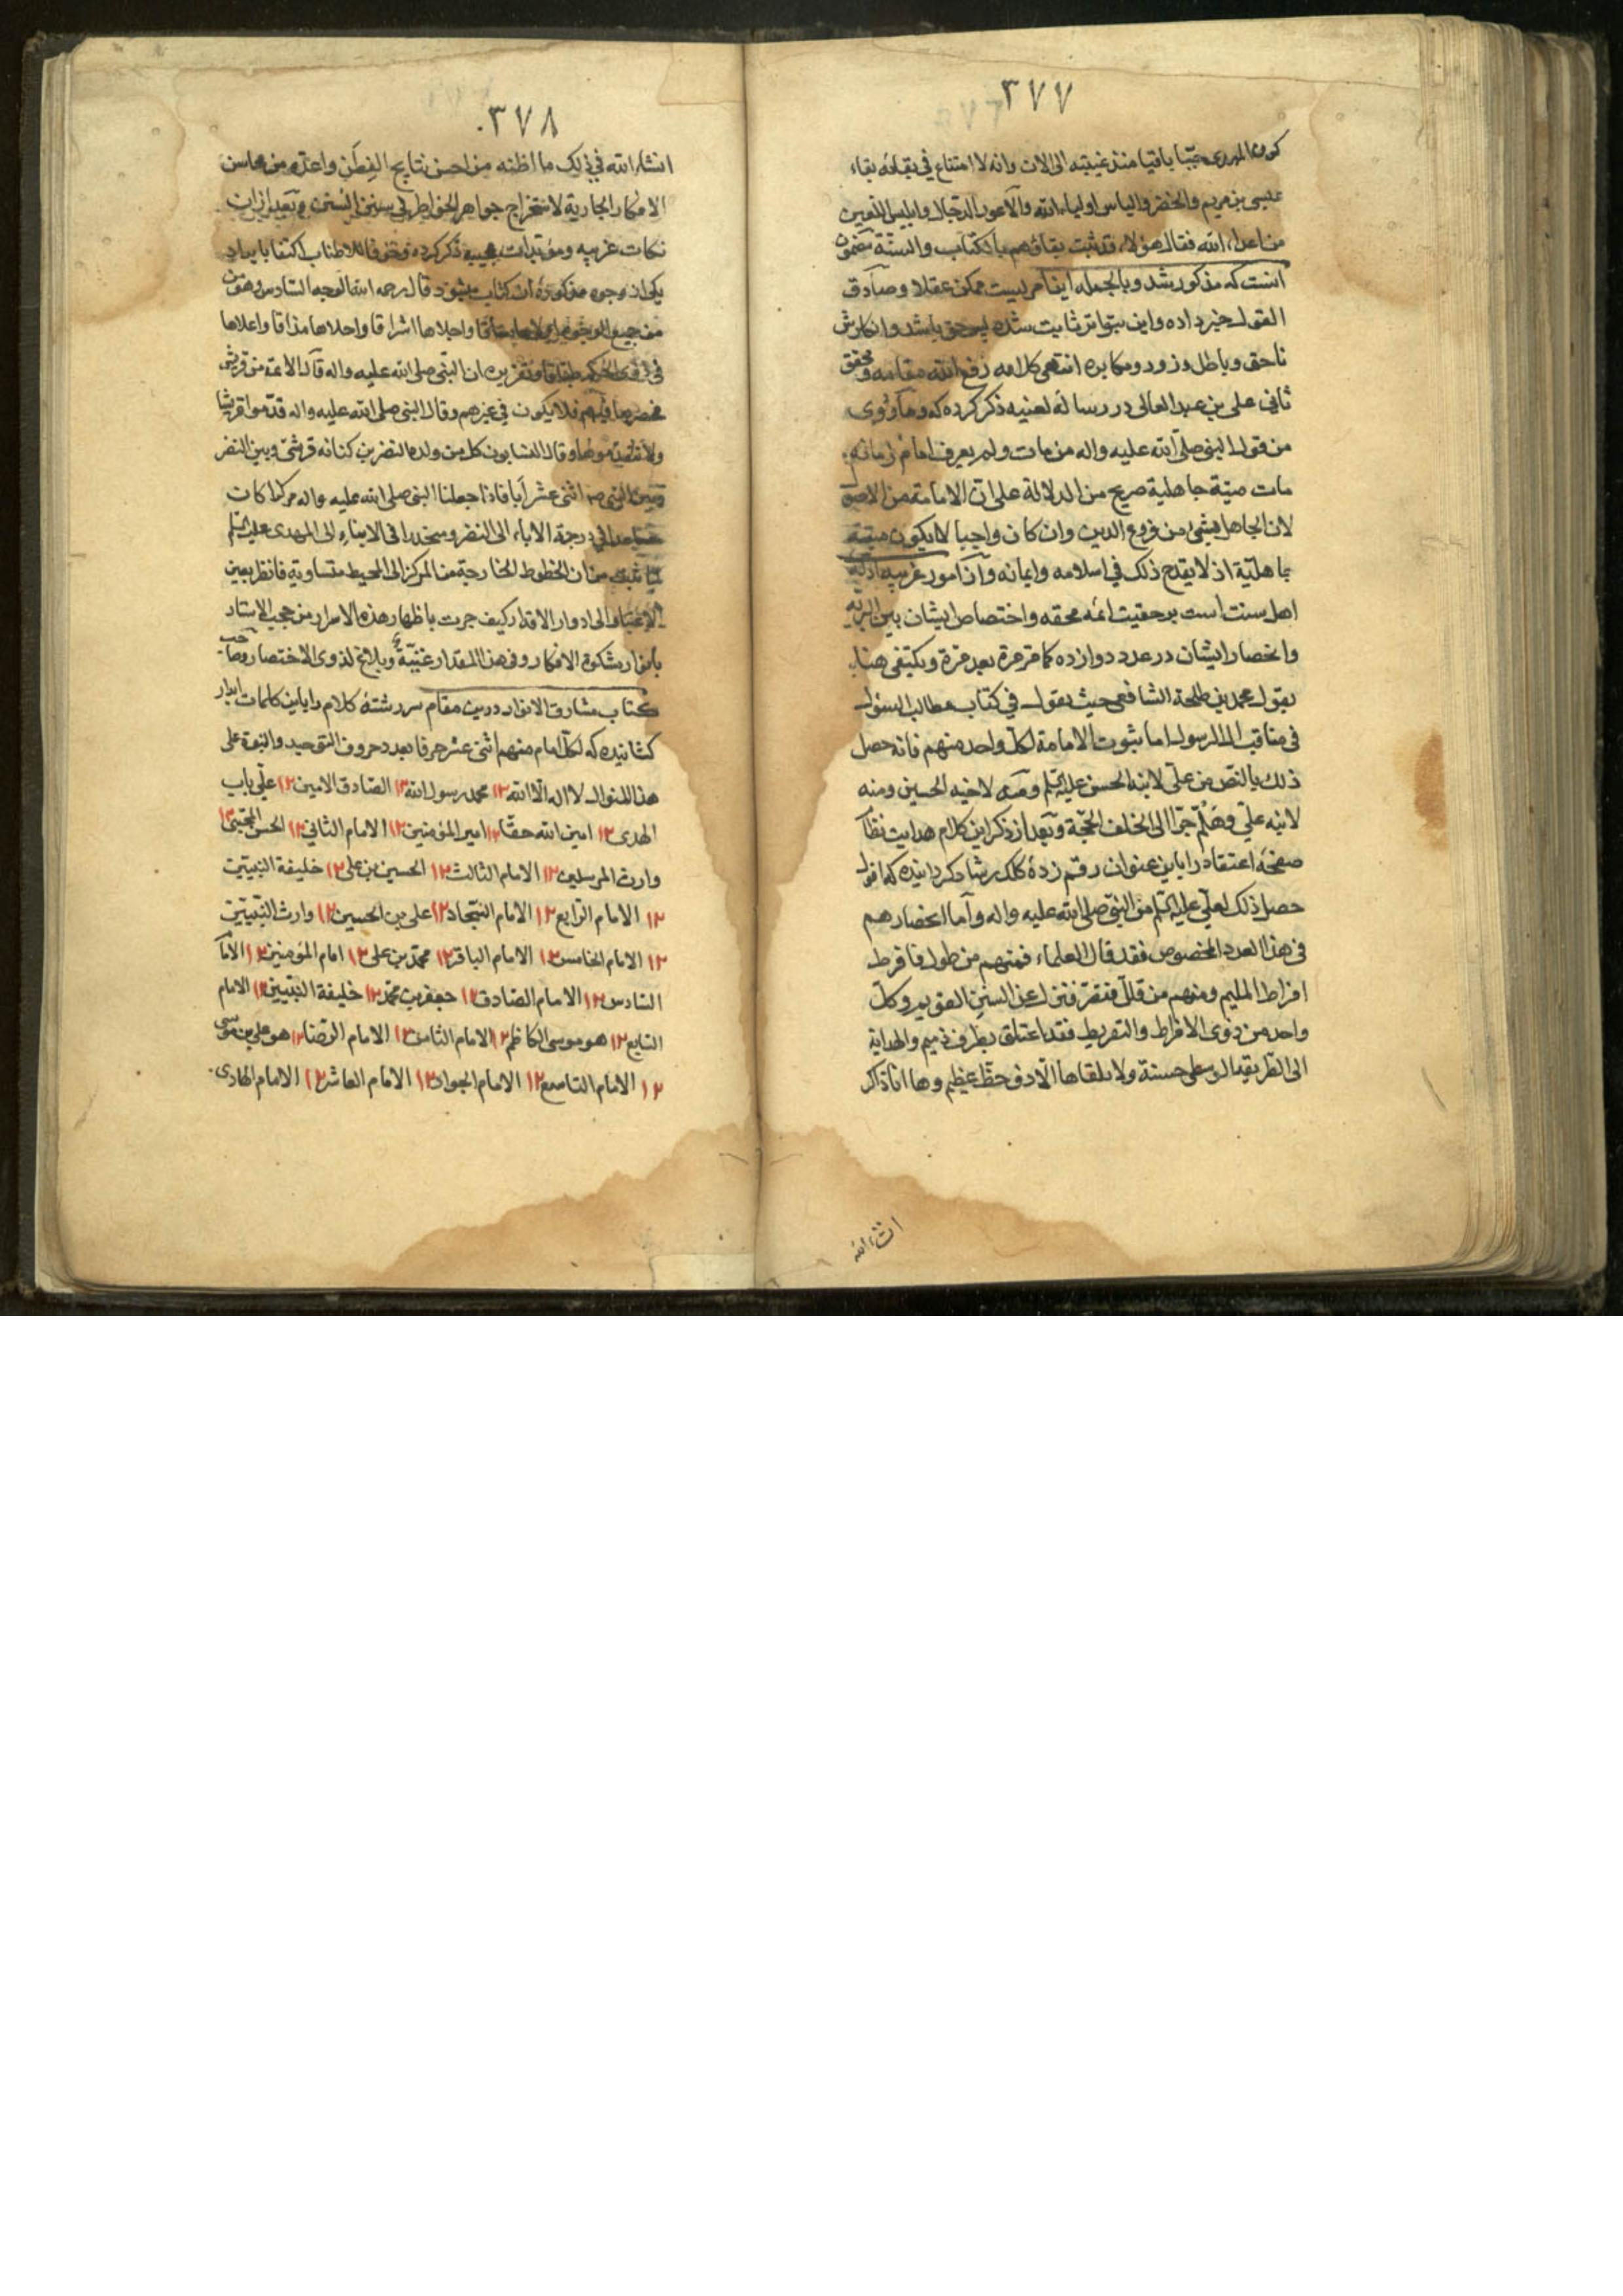 ٣٧٧
كون المهدى حيّا باقيا منذ غيبته الى الان وانه لا امتناع فى بقائه بقاء
عيسى بن مريم والخضر والياس اولياء الله والاعور الدجال وابليس اللعين
من اعداء الله فقال هؤلاء قد ثبت بقاؤهم بالكتاب والسنّة مضمون
انست كه مذكور شد وبالجمله اين امريست ممكن عقلا وصادق
القول خبر داده واين بتواتر ثابت شده پس حق باشد وانكارش
ناحق وباطل وزور ومكابره انتهى كلامه رفع الله مقامه ومحقق
ثانى على بن عبد العالى در رساله لعنيه ذكر كرده كه وما روى
من قول النبى صلّى الله عليه واله من مات ولم يعرف امام زمانه
مات ميتة جاهلية صريح من الدلالة على ان الامامة من الاصول
لان الجاهل بشئ من فروع الدين وان كان واجبا لا يكون ميتته
جاهليّة اذ لا يقدح ذلك فى اسلامه وايمانه واز امور غريبه ادلّه
اهل سنت است بر حقيت ائمه محقه واختصاص ايشان بين البريه
وانحصار ايشان در عدد دوازده كما مر مرة بعد مرة ونكتفى هنا
بقول محمد بن طلحة الشافعى حيث يقول فى كتاب مطالب السئول
فى مناقب ال الرسول اما ثبوت الامامة لكل واحد منهم فانه حصل
ذلك بالنص من علىّ لابنه الحسن عليه السلم ومنه لاخيه الحسين ومنه
لابنه علىّ وهَلُمّ جرّا الى الخلف الحجّة وبعد از ذكر اين كلام هدايت نظام
صفحه اعتقاد را باين عنوان رقم زدۀ كلك رشاد كردانيده كه اقول
حصل ذلك لعلىّ عليه السلم من النبى صلى الله عليه واله واما انحصارهم
فى هذا العدد المخصوص فقد قال العلماء فمنهم من طول فافرط
افراط المليم ومنهم من قلّل فقصّر فنزل عن السنن القويم وكلّ
واحد من ذوى الافراط والتفريط فقد اعتلق بطرف ذميم والهداية
الى الطريقة الوسطى حسنة ولا يلقاها الّا ذو حظّ عظيم وها انا ذاكر
انشاء الله
٣٧٨
انشاء الله فى ذلك ما اظنه من احسن نتايج الفِطَن واعدّه من محاسن
الافكار الجارية لاستخراج جواهر الخواطر فى سنن السنن وبعد از ان
نكات غريبه ومؤيدات عجيبه ذكر كرده وخوفا للاطناب اكتفا بايراد
يكى از وجوه مذكورۀ ان كتاب ميشود قال رحمه الله الوجه السادس وهو من
من جميع الوجوه واجلاها اشراقا واحلاها مذاقا واعلاها
فى ان النبى صلى الله عليه واله قال الائمة من قريش
فلا يكون فى غيرهم وقال النبى صلى الله عليه واله قدّموا قريشا
ولا تقدّموها وقال النسابون كل من ولده النضر بن كنانه قرشى وبين النضر
وبين النبى ص اثنى عشر أبا فاذا جعلنا النبى صلى الله عليه واله مركزا كان
فى درجة الاباء الى النضر ومنحدرا فى الابناء الى المهدى عليه السلم
من ان الخطوط الخارجة من المركز الى المحيط متساوية فانظر بعين
الاعتبار الى ادوار الاقدار كيف جرت باظهار هذه الاسرار من حجب الاستار
بانوار مشكوة الافكار وفى هذا المقدار غنيّة وبلاغ لذوى الاختصار وصاحب
كتاب مشارق الانوار درين مقام سررشتۀ كلام را باين كلمات ابدار
كشانيده كه لكل امام منهم اثنى عشر حرفا بعدد حروف التوحيد والنبوة على
هذا المنوال لا اله الا الله ١٢ محمد رسول الله ١٢ الصادق الامين ١٢ علىّ باب
الهدى ١٢ امين الله حقّا ١٢ امير المؤمنين ١٢ الامام الثانى ١٢ الحسن المجتبى ١٢
وارث المرسلين ١٢ الامام الثالث ١٢ الحسين بن على ١٢ خليفة النبيّين
١٢ الامام الرابع ١٢ الامام السّجاد ١٢ على بن الحسين ١٢ وارث النّبيّين
١٢ الامام الخامس ١٢ الامام الباقر ١٢ محمّد بن على ١٢ امام المؤمنين ١٢ الامام
السادس ١٢ الامام الصادق ١٢ جعفر بن محمّد ١٢ خليفة النبيّين ١٢ الامام
السابع ١٢ هو موسى الكاظم ١٢ الامام الثامن ١٢ الامام الرّضا ١٢ هو على بن موسى
١٢ الامام التاسع ١٢ الامام الجواد ١٢ الامام العاشر ١٢ الامام الهادى